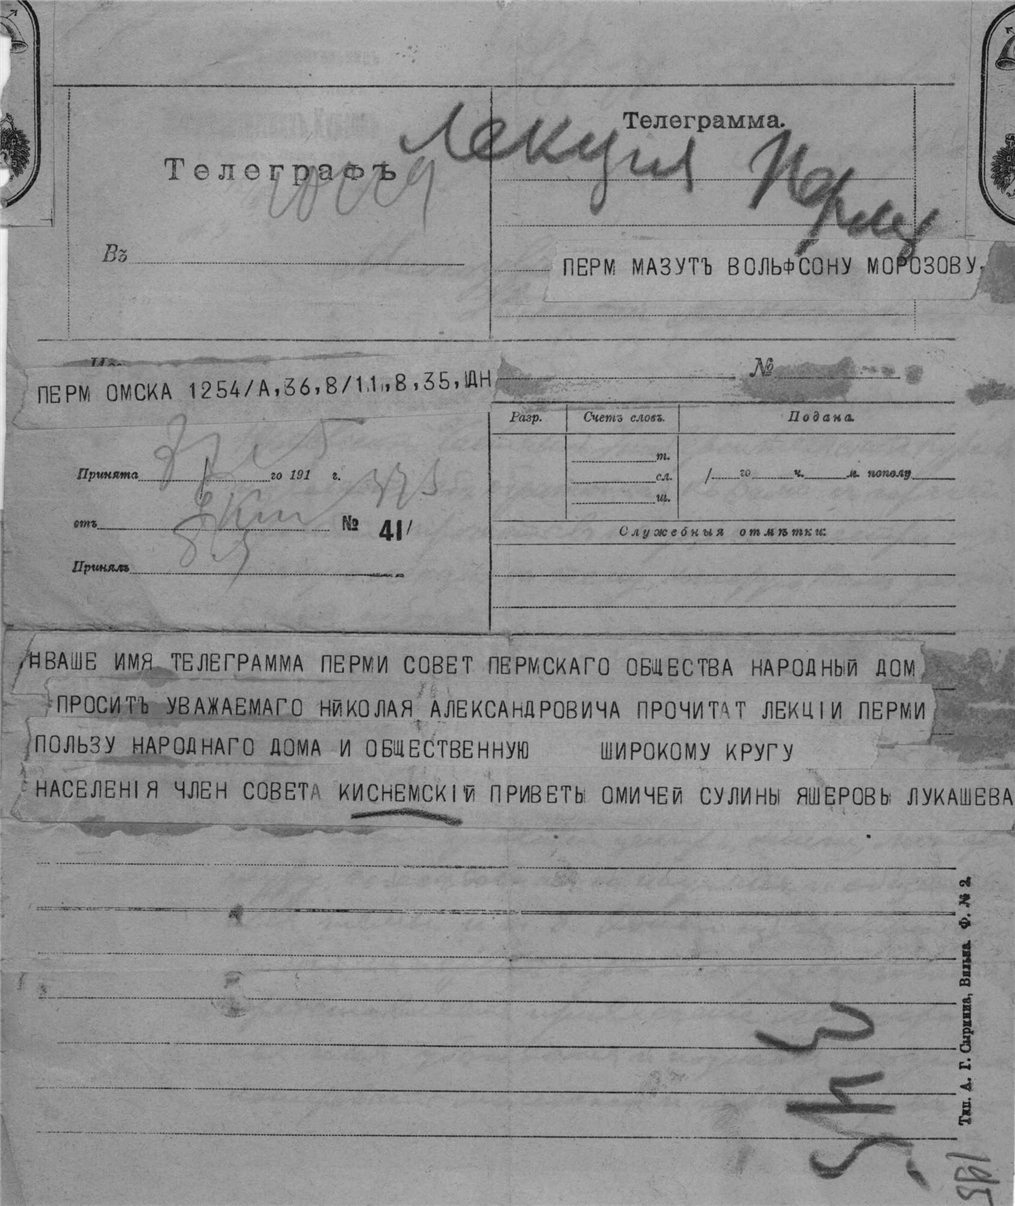 Телеграфъ
Телеграмма.
Лекция Пермь
Въ
ПЕРМ МАЗУТЪ ВОЛЬФСОНУ МОРОЗОВУ
ПЕРМ ОМСКА 1254/А,36,8/11,,8,35,ШДН
№
Разр. Счетъ словъ. Подана
Принята го 191 г.
т.
сл.
ш.
го ч. м. пополу
отъ № 41/
Служебныя отмѣтки:
Принялъ
НВАШЕ ИМЯ ТЕЛЕГРАММА ПЕРМИ СОВЕТ ПЕРМСКАГО ОБЩЕСТВА НАРОДНЫЙ ДОМ
ПРОСИТЪ УВАЖАЕМАГО НЙКОЛАЯ АЛЕКСАНДРОВИЧА ПРОЧИТАТ ЛЕКЦІИ ПЕРМИ
ПОЛЬЗУ НАРОДНАГО ДОМА И ОБЩЕСТВЕННУЮ ШИРОКОМУ КРУГУ
НАСЕЛЕНІЯ ЧЛЕН СОВЕТА КИСНЕМСКІЙ ПРИВЕТЫ ОМИЧЕЙ СУЛИНЫ ЯШЕРОВЫ ЛУКАШЕВА
Тип. А. Г. Сыркина, Вильна. Ф. № 2.
195